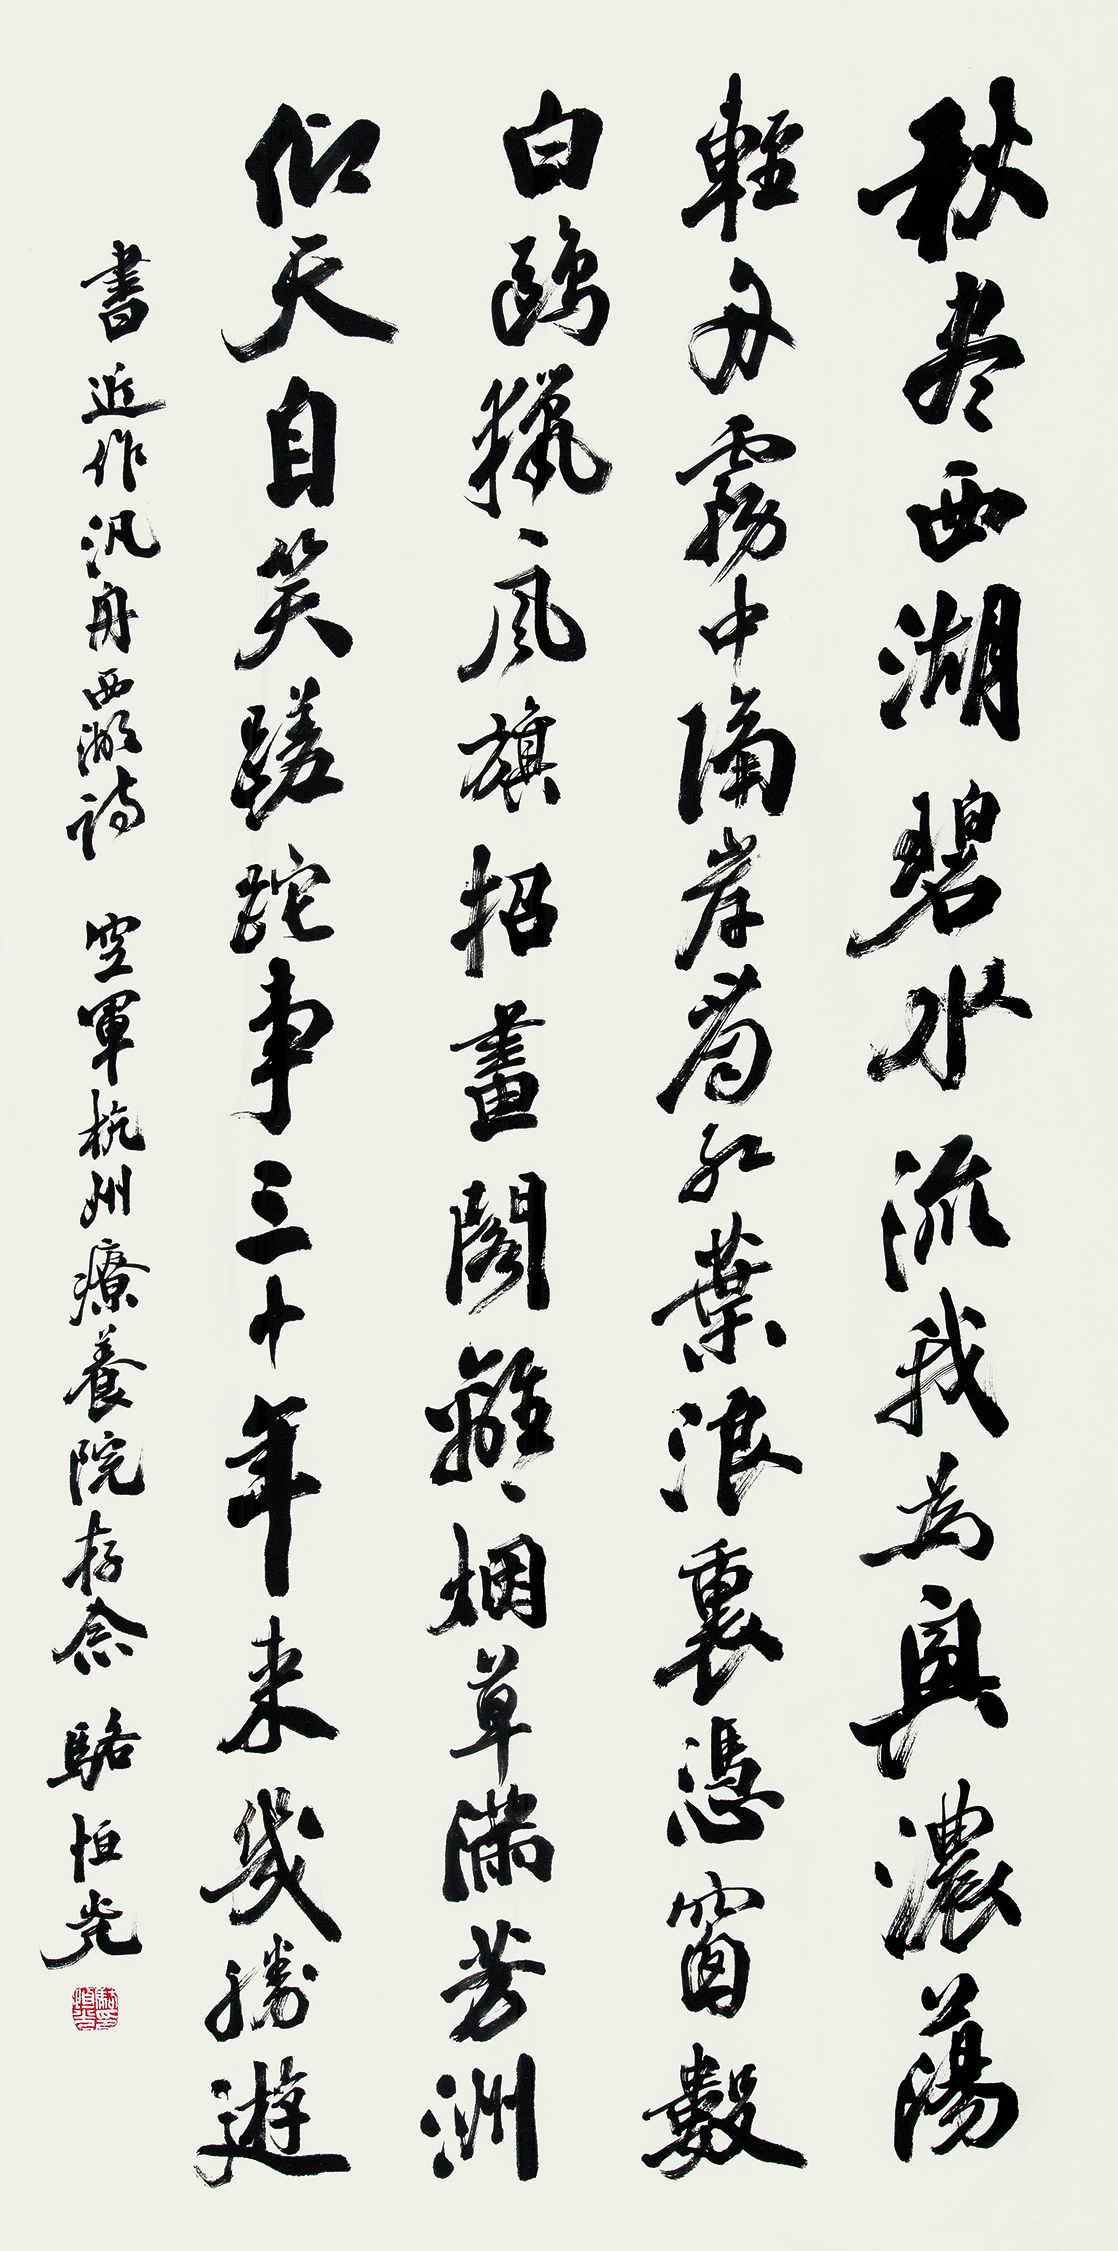 秋尽西湖碧水流我為興濃蕩
輕舟霧中隔岸看紅葉浪裏憑窗數
白鷗獵丶風旗招畫閣離丶烟草滿芳洲
仰天自笑蹉跎事三十年来幾勝遊
書近作汎舟西湖詩 空軍杭州療養院存念 駱恒光